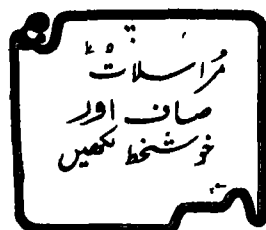 مراسلات
صاف اور
خوشخط لکھیں